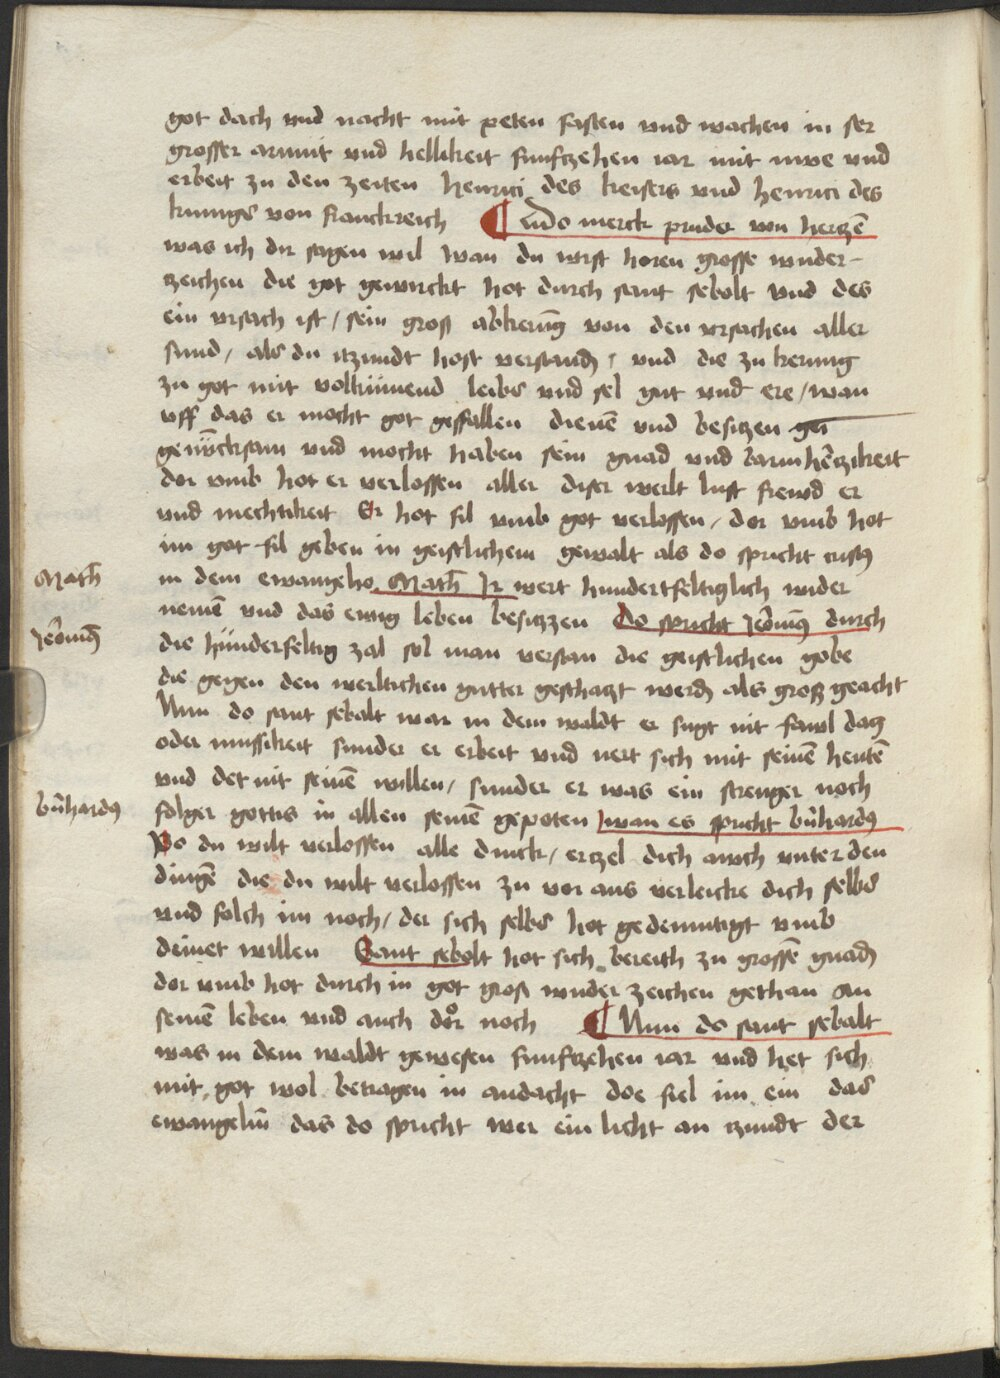 got dach vnd nacht mit peten fasten vnd wachen in ser
grosser armüt vnd hellikeit funftzehen iar mit mve vnd
erbeit zu den zeiten henrici des keisers vnd henrici des
kunigs von franckreich ¶ Udo merck pruder von hertzē
was ich dir sagen wil wan du wirst horen grosse wunder-
zeichen die got gewirckt hot durch sant sebolt vnd des
ein vrsach ist / sein groß abkerūg von den vrsachen aller
sund / als du itzundt host verstandē / vnd die zu kerung
zu got mit volkümend leibs vnd sel gut vnd ere / wan
vff das er mocht got geffallen dienē vnd besitzen
vnd mocht haben sein gnad vnd barmhertzikeit
dor vmb hot er verlossen aller diser werlt lust frewd er
vnd mechtikeit Er hot fil vmb got verlossen / dor vmb hot
im got fil geben in geistlichem gewalt als do spricht cristꝰ
Math̄
in dem ewangelio Math̄ Ir wert hundertfeltiglich wider
nemē vnd das ewig leben besitzzen Do spricht Jeronimꝰ durch
Jeronimꝰ
die hünderfeltig zal sol man verstan die geistlichen gobe
die gegen den werltlichen gutter geschatzt werdē als groß geacht
Nun do sant sebalt war in dem waldt er sugt nit fawl dag
oder mussikeit sunder er erbeit vnd nert sich mit seinē hentē
vnd det nit seinē willen / sunder er was ein strenger noch
bn̄hardꝰ
folger gottis in allen seinē gepoten wan es spricht bn̄hardꝰ
So du wilt verlossen alle dinck / ertzel dich auch vnter den
dingē die du wilt verlossen zu vor aus verleicke dich selbs
vnd folch im noch / der sich selbs hot gedemutigt vmb
deinet willen Sant sebolt hot sich bereith zu grossē gnadē
dor vmb hot durch in got groß wunder zeichen gethan an
seinē leben vnd auch dor noch ¶ Nun do sant sebalt
was in dem waldt gewesen funftzehen iar vnd het sich
mit got wol betragen in andacht doe fiel im ein das
ewangeliū das do spricht wer ein licht an tzundt der